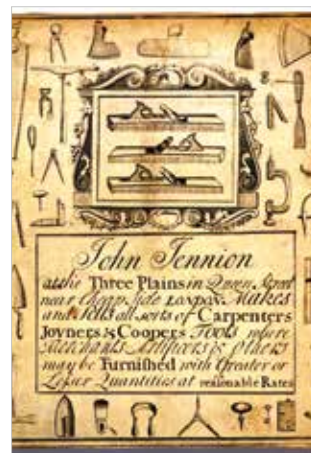 John Jennion
at the Three Plains in Queen Street
near Cheapside London. Makes
and Sells all sorts of Carpenters
Joyners & Coopers Tools where
Merchants Artificers & Others
may be Furnished with Greater or
Lesser Quantities at reasonable Rates